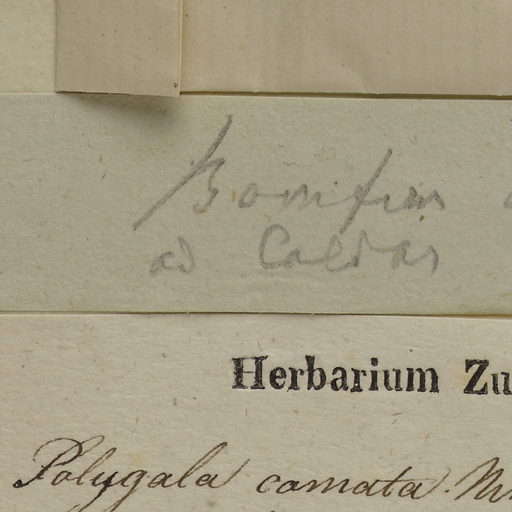 Bomfim
ad Caldas
Herbarium Zu
Polygala comata. M